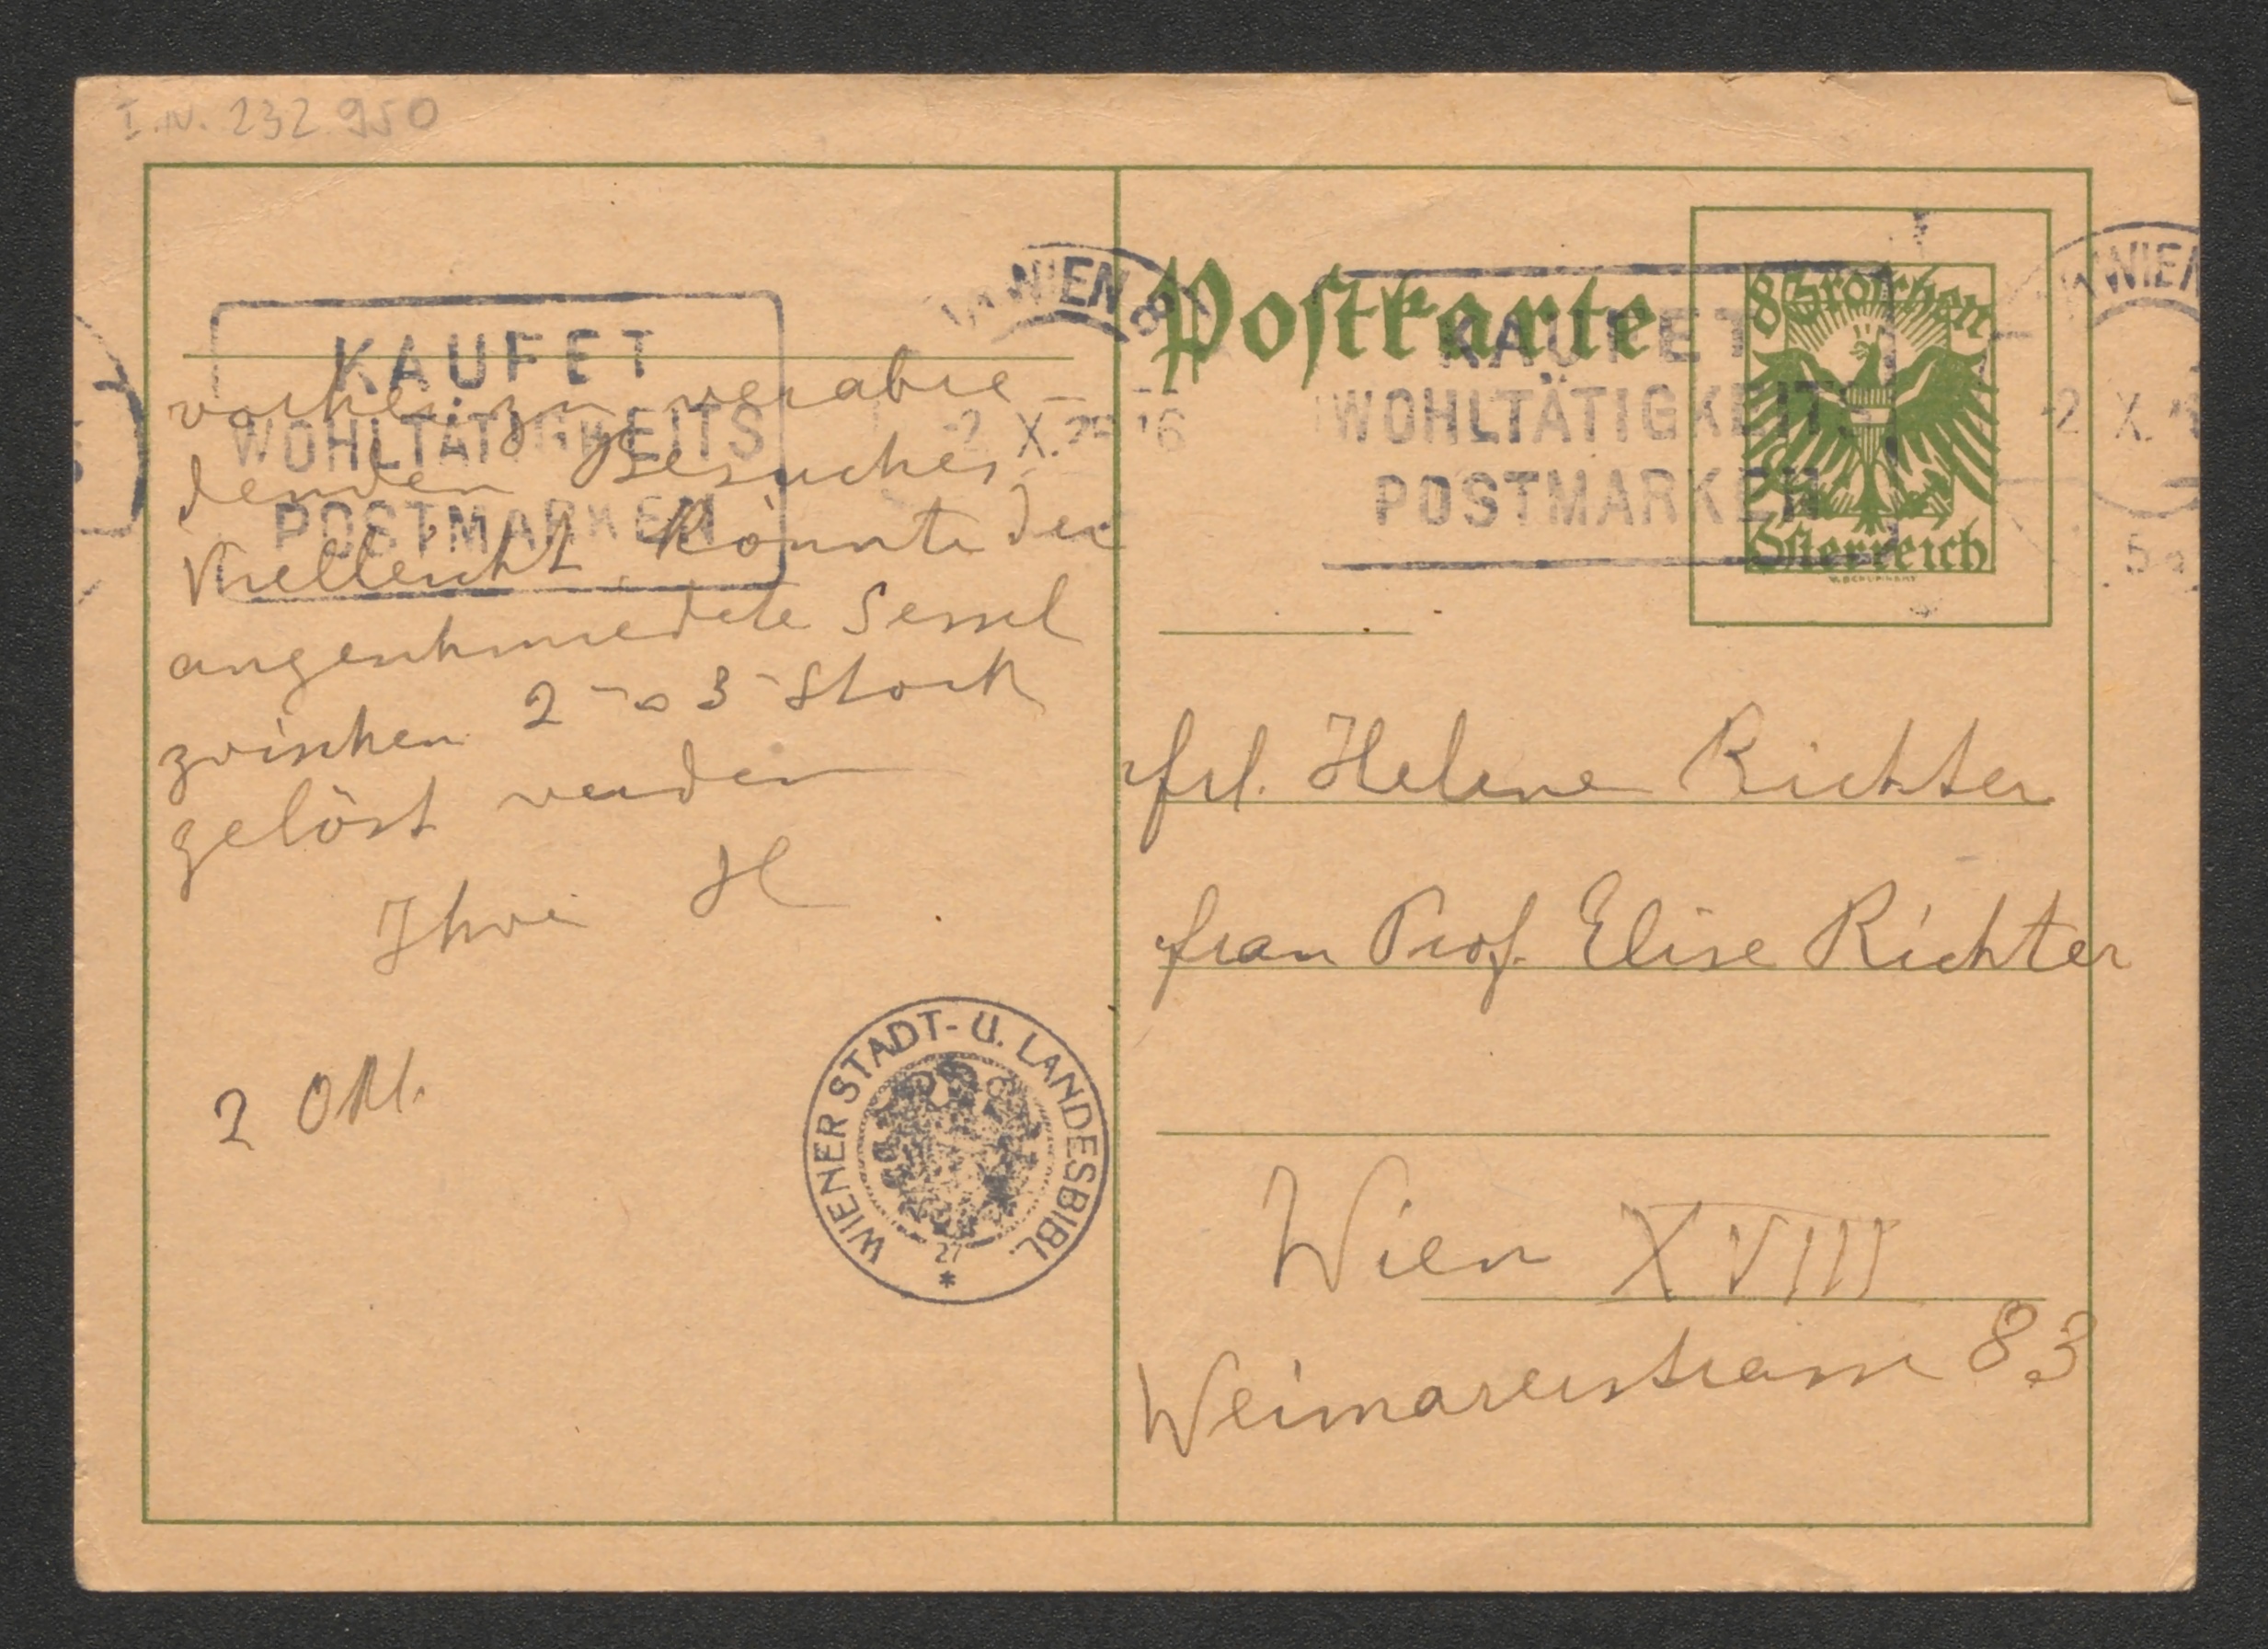 I.N. 232.950
KAUFET
WOHLTÄTIGKEITS
POSTMARKEN
WIEN
2 X.
vorher zu verabre-
denden Besuches.
Vielleicht könnte der
angeschmiedete Sessel
zwischen 2 - 3 Stock
gelöst werden
Ihre H
2 Okt.
WIENER STADT- U. LANDESBIBL.
27
Postkarte
KAUFET
WOHLTÄTIGKEITS
POSTMARKEN
8 Groschen
Österreich
WIEN
2 X.
Frl. Helene Richter
Frau Prof. Elise Richter
Wien XVIII
Weimarerstrasse 83